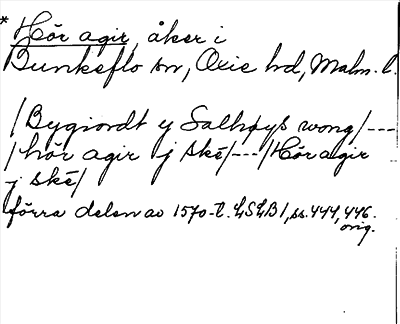 * Hör agir, åker i
Bunkeflo sn, Oxie hd, Malm. l.
/Bygiordt y Salhøys wong/---
/hör agir j skē/---/Hör agir
j skē/
förra delen av 1570-t. LSLB 1, ss. 444, 446.
orig.